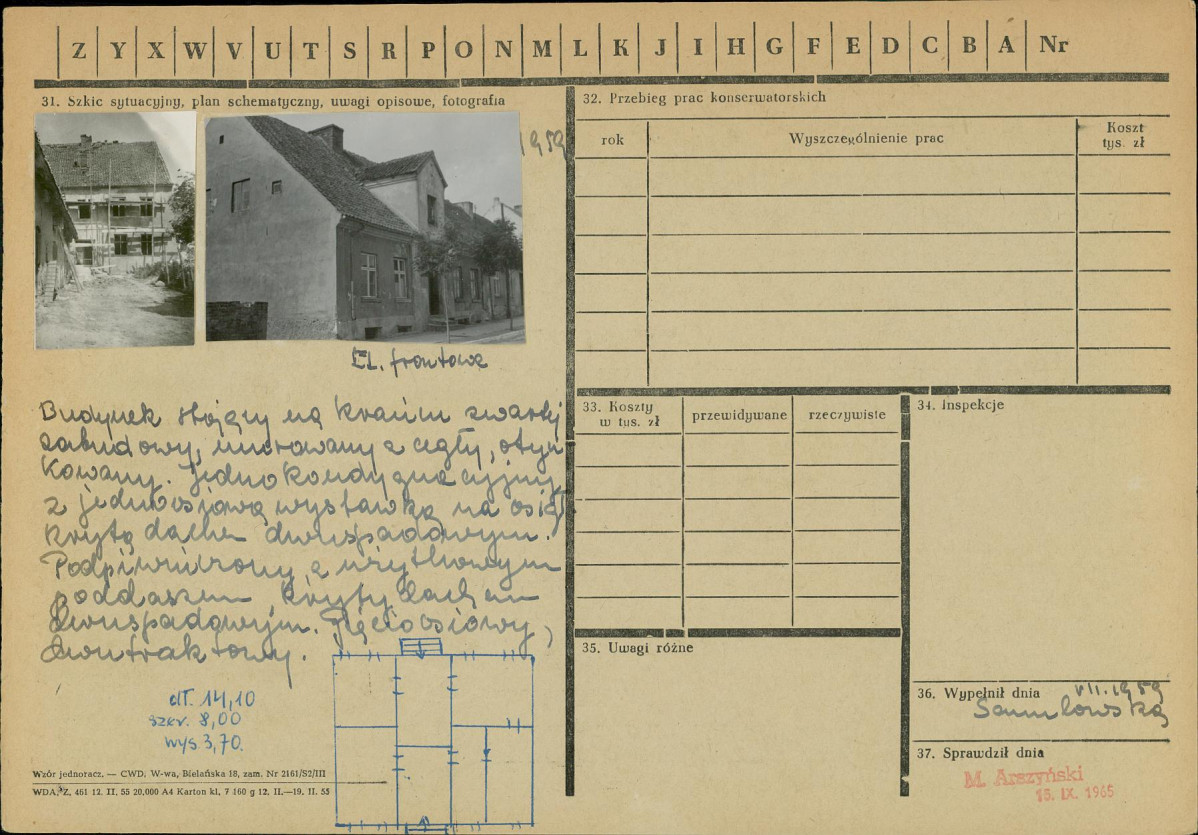 Z Y X W V U T S R P O N M L K J I H G F E D C B A Nr
31. Szkic sytuacyjny, plan schematyczny, uwagi opisowe, fotografia
1959
El. frontowa
Budynek stojący na krańcu zwartej
zabudowy, murowany z cegły, otyn
kowany. Jednokondygnacyjny
z jednoosiową wystawką na osi,
krytą dachem dwuspadowym.
Podpiwniczony, z użytkowym
poddaszem krytym dachem
dwuspadowym. Pięcioosiowy,
dwutraktowy.
dł. 14,10
szer. 8,00
wys. 3,70.
Wzór jednoracz. — CWD, W-wa, Bielańska 18, zam. Nr 2161/S2/III
WDA. Z. 461 12. II. 55 20,000 A4 Karton kl. 7 160 g 12. II.—19. II. 55
32. Przebieg prac konserwatorskich
rok Wyszczególnienie prac Koszt
tys. zł
33. Koszty
w tys. zł
przewidywane rzeczywiste
34. Inspekcje
35. Uwagi różne
36. Wypełnił dnia VII.1959
37. Sprawdził dnia
M. Arszyński
15. IX. 1965